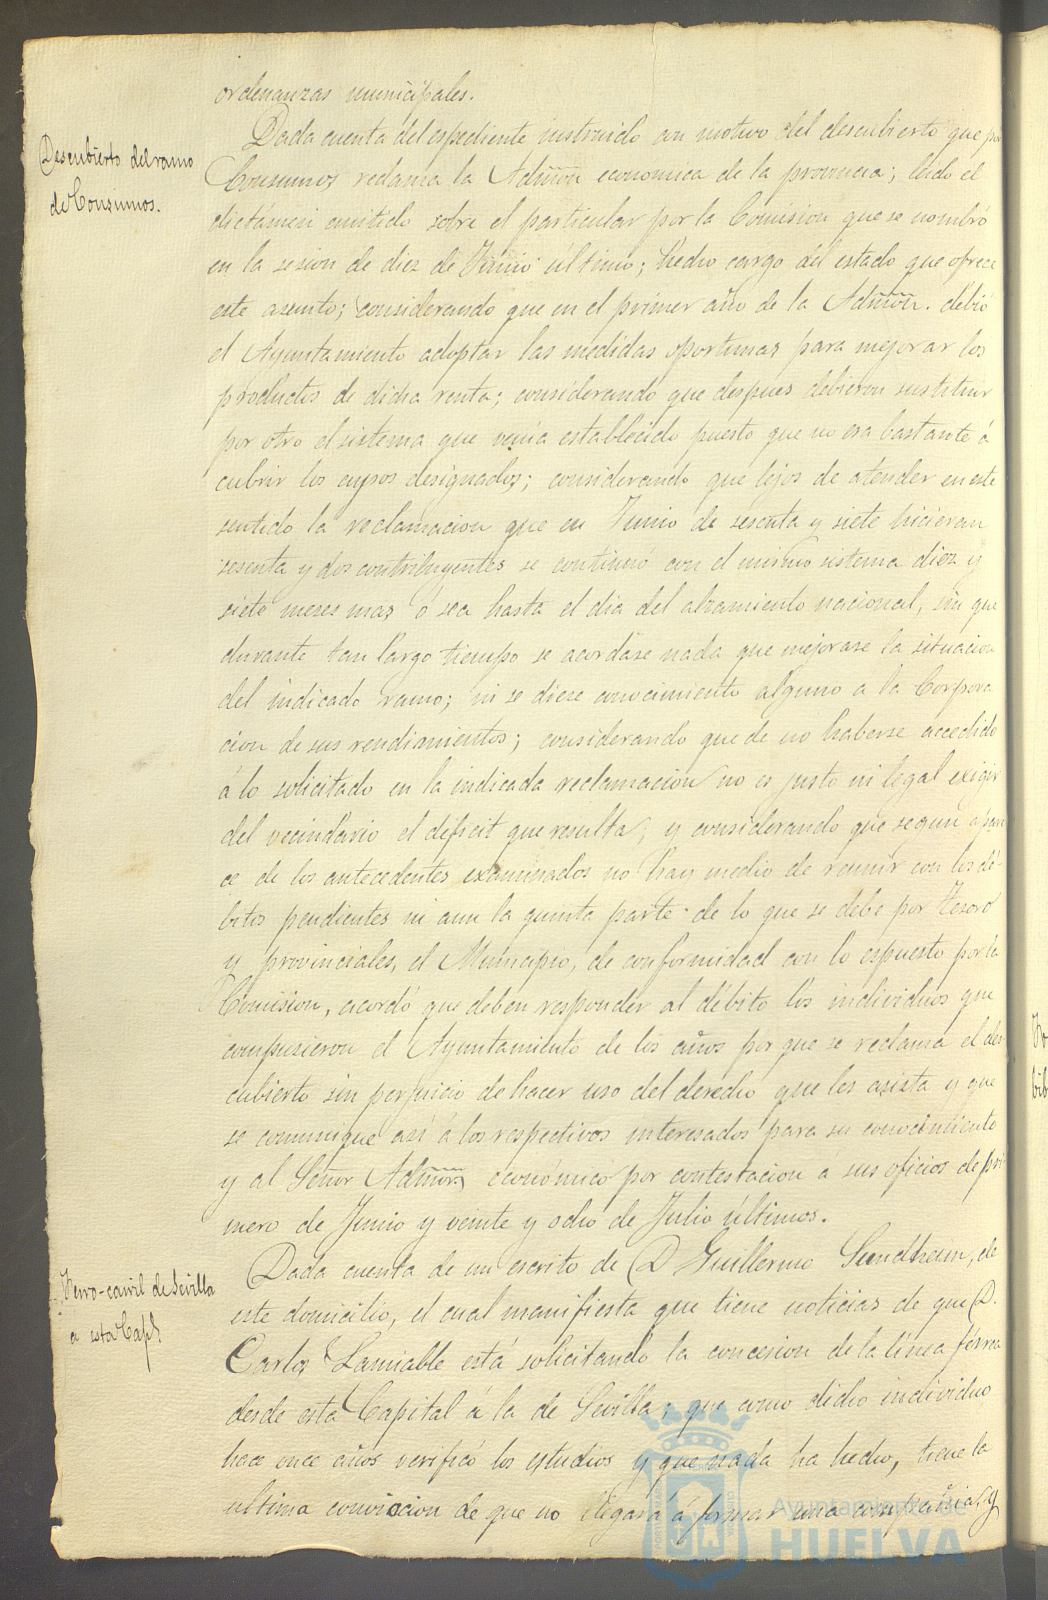 ordenanzas municipales.
Descubierto del ramo
de Consumos.
Dada cuenta del espediente instruido con motivo del descubierto que por
Consumos reclama la Admon economica de la provincia; leido el
dictámen emitido sobre el particular por la Comision que se nombró
en la sesion de diez de Junio último; hecho cargo del estado que ofrece
este asunto; considerando que en el primer año de la Admon. debió
el Ayuntamiento adoptar las medidas oportunas para mejorar los
productos de dicha renta; considerando que despues debieron sustituir
por otro el sistema que venia establecido puesto que no era bastante á
cubrir los cupos designados; considerando que lejos de atender en este
sentido la reclamacion que en Junio de sesenta y siete hicieran
sesenta y dos contribuyentes se continuó con el mismo sistema diez y
siete meses mas ó sea hasta el dia del alzamiento nacional, sin que
durante tan largo tiempo se acordase nada que mejorase la situacion
del indicado ramo; ni se diese conocimiento alguno a la Corpora
cion de sus rendimientos; considerando que de no haberse accedido
á lo solicitado en la indicada reclamacion no es justo ni legal exigir
del vecindario el déficit que resulta; y considerando que segun apare
ce de los antecedentes examinados no hay medio de reunir con los dé-
bitos pendientes ni aun la quinta parte de lo que se debe por Tesoro
y provinciales, el Municipio, de conformidad con lo espuesto por la
Comision, acordó que deben responder al débito los individuos que
compusieron el Ayuntamiento de los años por que se reclama el des
cubierto sin perjuicio de hacer uso del derecho que les asista y que
se comunique así á los respectivos interesados para su conocimiento
y al Señor Admor económico por contestacion á sus oficios de pri
mero de Junio y veinte y ocho de Julio últimos.
Ferro-carril de Sevilla
a esta Capl.
Dada cuenta de un escrito de D Guillermo Sundheim, de
este domicilio, el cual manifiesta que tiene noticias de que D.
Carlos Lamiable está solicitando la concesion de la linea férrea
desde esta Capital á la de Sevilla; que como dicho individuo
hace once años verificó los estudios y que nada ha hecho, tiene la
ultima conviccion de que no llegará á formar una compañia, y
Ayuntamiento de
HUELVA